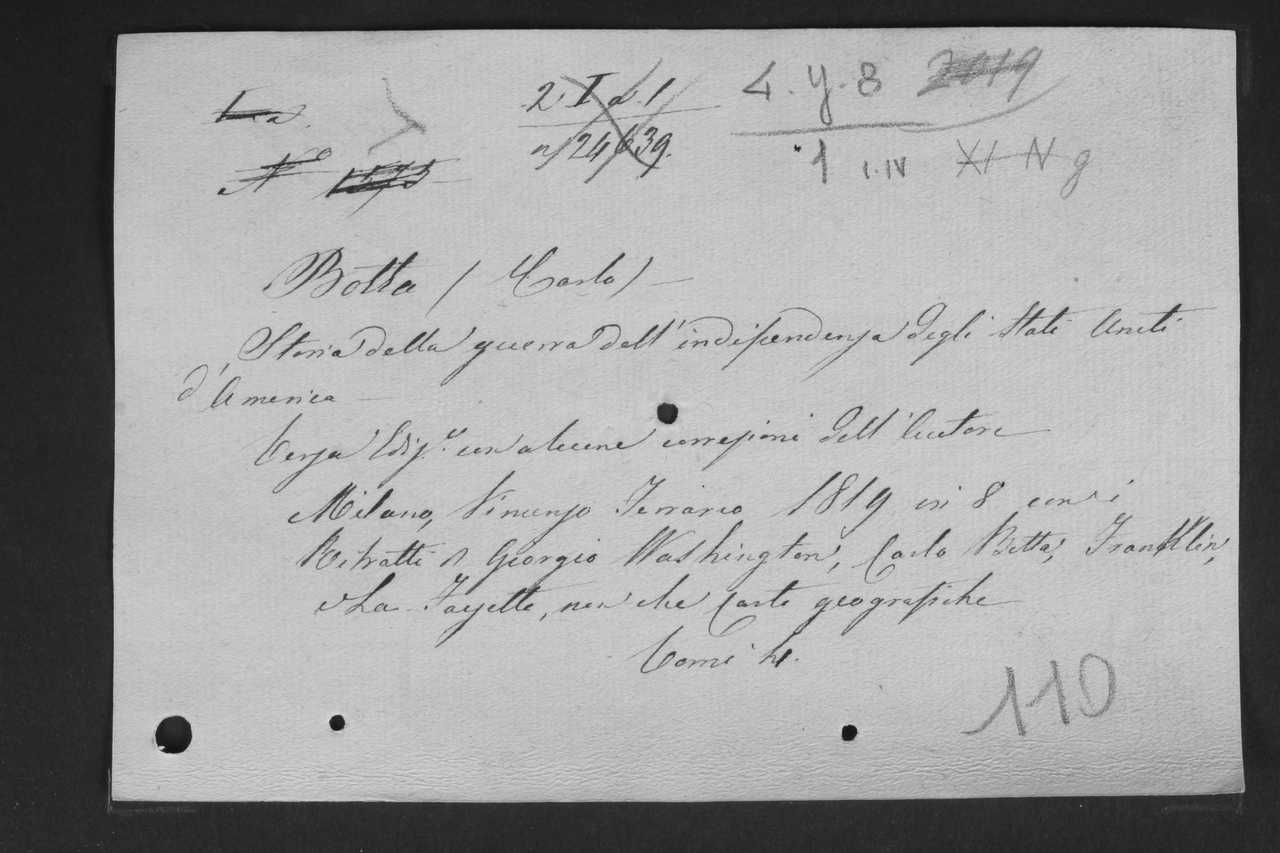 2 I d. 1 4. y. 8 2019
n/ 24639. 1 I. IV XI N g
No
Botta (Carlo) —
Storia della guerra dell'indipendenza degli Stati Uniti
d'America —
Terza Ediz.e con alcune correzioni dell'Autore
Milano, Vincenzo Ferrario 1819 in 8 con i
Ritratti di Giorgio Washington, Carlo Botta, Franklin,
e La Fayette, non che Carte geografiche
Tomi 4.
110